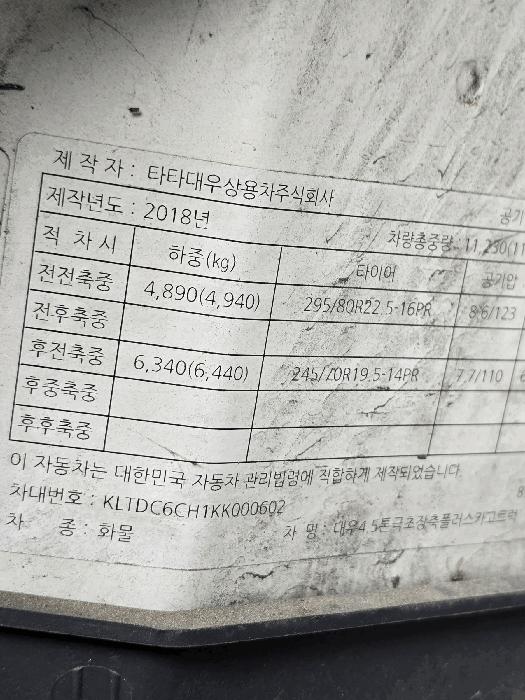 제 작 자 : 타타대우상용차주식회사
제작년도 : 2018년 차량총중량 11,230(11
공기
적 차 시 하중(kg) 타이어 공기압
전전축중 4,890(4,940) 295/80R22.5-16PR 8.6/123
전후축중
후전축중 6,340(6,440) 245/70R19.5-14PR 7.7/110 6
후중축중
후후축중
이 자동차는 대한민국 자동차 관리법령에 적합하게 제작되었습니다.
차대번호 : KLTDC6CH1KK000602
차 종 : 화물 차 명 : 대우4.5톤극초장축플러스카고트럭